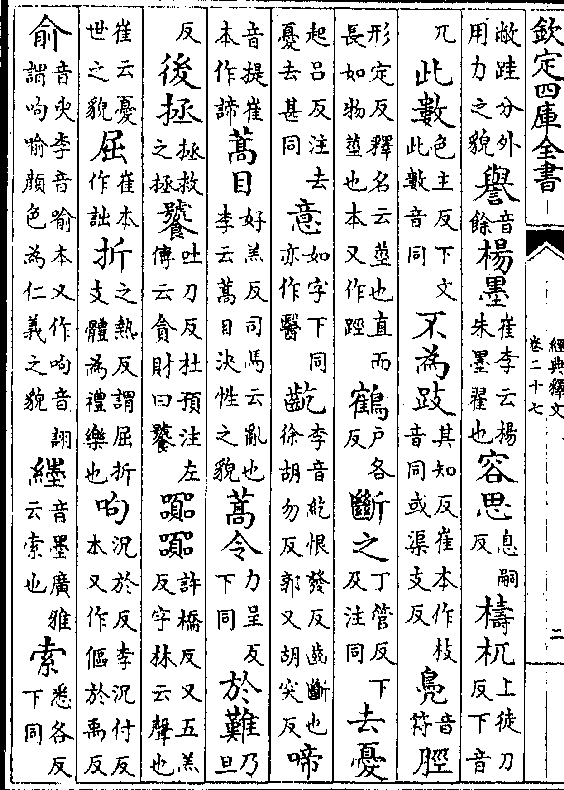 欽定四庫全書
經典釋文
卷二十七
二
敝跬分外用力之貌譽音餘楊墨崔李云楊朱墨翟也容思息嗣反檮杌上徒刀反下音
兀此數色主反下文此數音同不為跂其知反崔本作枝音同或渠支反鳧音符脛
形定反釋名云莖也直而長如物莖也本又作踁鶴户各反斷之丁管反下及注同去憂
起吕反注去憂去甚同意如字下同亦作醫齕李音紇恨發反齒斷也徐胡勿反郭又胡突反啼
音提崔本作諦蒿目好羔反司馬云亂也李云蒿目決性之貌蒿令力呈反下同於難乃旦
反後拯拯救之拯饕吐刀反杜預注左傳云貪財曰饕嚻嚻許橋反又五羔反字林云聲也
崔云憂世之貌屈崔本作詘折之熱反謂屈折支體為禮樂也呴況於反李況付反本又作傴於禹反
俞音臾李音喻本又作呴音詡謂呴喻顔色為仁義之貌纆音墨廣雅云索也索悉各反下同